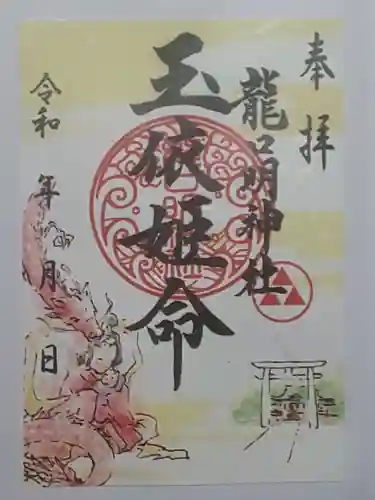 奉拝
龍口明神社
玉依姫命
令和 年 月 日